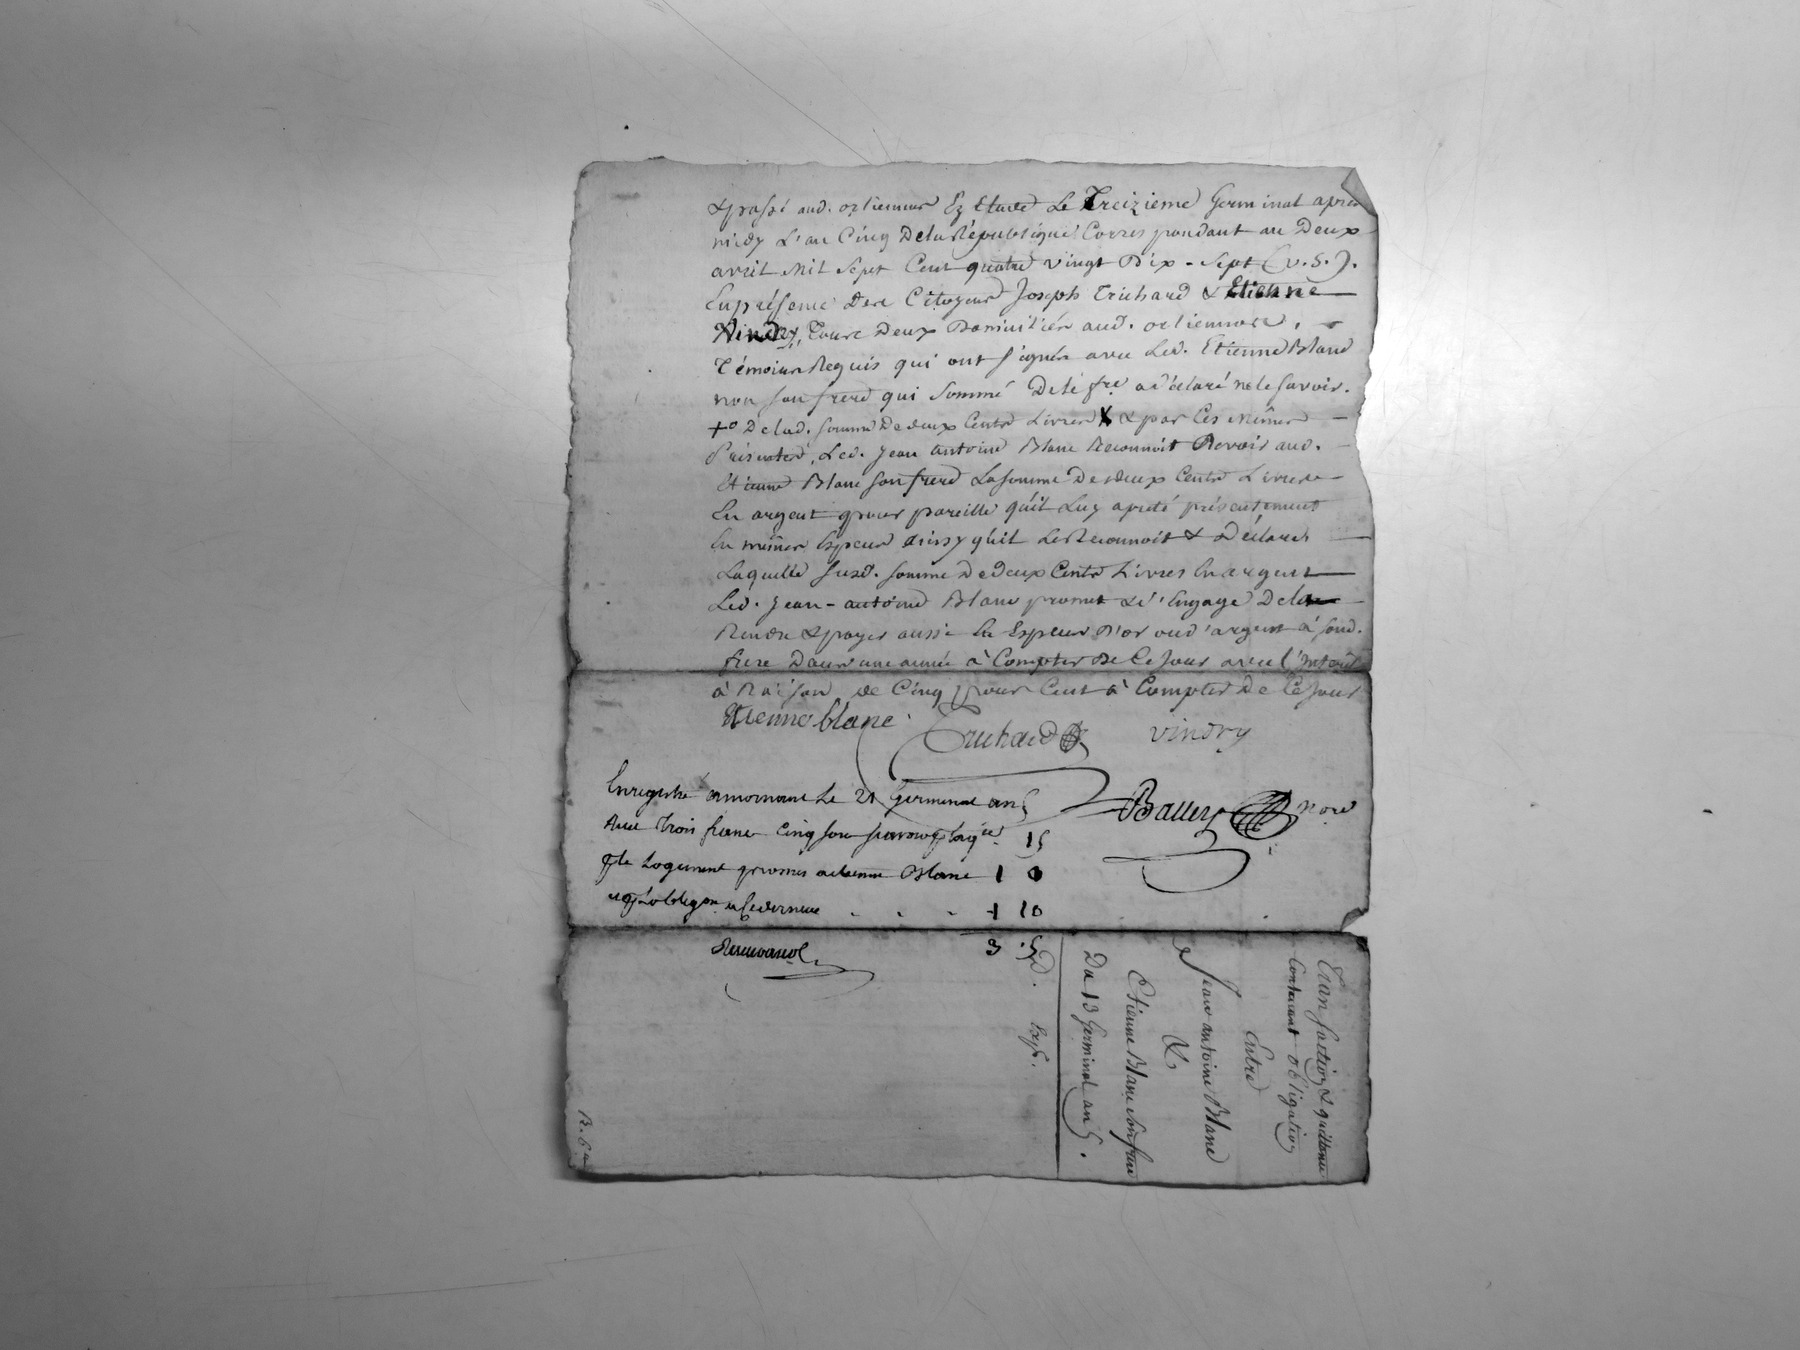 & passé aud. orliennas Ez Etude Le Treizieme Germinal apres
midy L'an Cinq De la République Correspondant au Deux
avril Mil Sept Cent quatre vingt Dix-Sept (v.S.).
En présence des Citoyens Joseph Trichard & Etienne
Vindry, tous Deux Domiciliés aud. orliennas,
Témoins Requis qui ont signés avec Led. Etienne Blanc
non son frere qui Sommé De le fre. a déclaré ne le savoir.
+o De lad. somme De deux Cents Livres X & par Ces mêmes
Présentes, Led. Jean antoine Blanc Reconnoit Devoir aud.
Etienne Blanc son frere La somme De deux Cents Livres
En argent pour pareille qu'il Luy a preté présentement
En mêmes Especes ainsy qu'il Le Reconnoit & Déclare,
Laquelle susd. somme De deux Cents Livres En argent
Led. Jean-antoine Blanc promet & s'Engage De la
Rendre & payer aussi En Especes D'or ou d'argent à sond.
frere Dans une année à Compter De Ce Jour avec l'intérêt
à Raison de Cinq pour Cent à Compter De Ce Jour
Etienne blanc
Trichard
vindry
Enregistré a mornant Le 21 Germinal an 5
Reçu Trois francs Cinq sous
15
Blanc 1 0
1 10
3 5
Ballez Nore
Transaction & quittance
Contenant obligation
Entre
Jean antoine Blanc
&
Etienne Blanc Son frere
Du 13 Germinal an 5.
D. Exp.